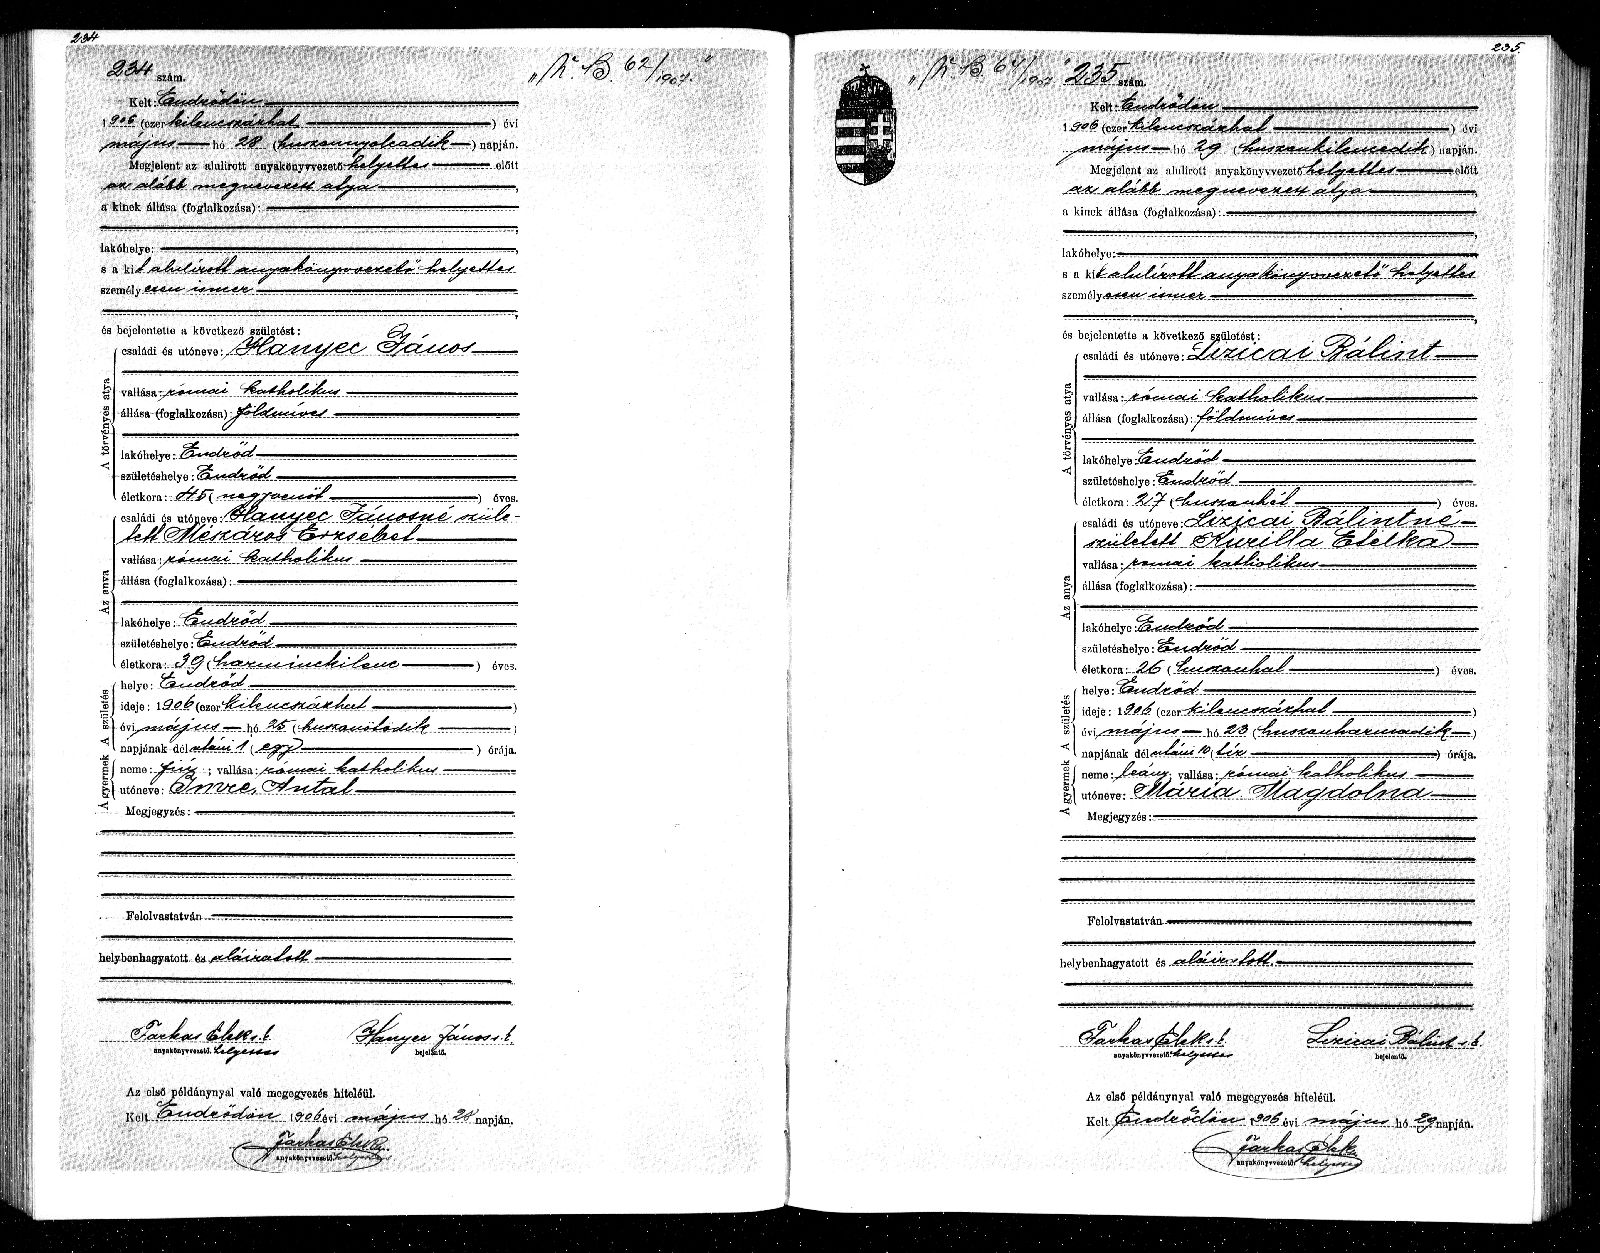 234
234 szám.
„K. B. 62/1907."
Kelt: Endrődön
1906 (ezer kilencszázhat) évi
május hó 28 (huszonnyolcadik) napján.
Megjelent az alulirott anyakönyvvezető helyettes előtt
az alább megnevezett atya,
a kinek állása (foglalkozása):
lakóhelye:
s a kit alulírott anyakönyvvezető helyettes
személyesen ismer
és bejelentette a következő születést:
A törvényes atya
családi és utóneve: Hanyec János
vallása: római katholikus
állása (foglalkozása): földmíves
lakóhelye: Endrőd
születéshelye: Endrőd
életkora: 45 (negyvenöt) éves.
Az anya
családi és utóneve: Hanyec Jánosné szüle-
tett Mészáros Erzsébet
vallása: római katholikus
állása (foglalkozása):
lakóhelye: Endrőd
születéshelye: Endrőd
életkora: 39 (harminckilenc) éves.
A születés
helye: Endrőd
ideje: 1906 (ezer kilencszázhat)
évi május hó 25 (huszonötödik)
napjának dél utáni 1 (egy) órája.
A gyermek
neme: fiú; vallása: római katholikus
utóneve: Imre, Antal
Megjegyzés:
Felolvastatván
helybenhagyatott és aláíratott
Farkas Elek s. k. Hanyec János s. k.
anyakönyvvezető helyettes bejelentő.
Az első példánynyal való megegyezés hiteléül.
Kelt Endrődön 1906 évi május hó 28 napján.
Farkas Elek
anyakönyvvezető helyettes
235.
„K. B. 64/1907." 235 szám.
Kelt: Endrődön
1906 (ezer kilencszázhat) évi
május hó 29 (huszonkilencedik) napján.
Megjelent az alulirott anyakönyvvezető helyettes előtt
az alább megnevezett atya,
a kinek állása (foglalkozása):
lakóhelye:
s a kit alulírott anyakönyvvezető helyettes
személyesen ismer
és bejelentette a következő születést:
A törvényes atya
családi és utóneve: Lizicai Bálint
vallása: római katholikus
állása (foglalkozása): földmíves
lakóhelye: Endrőd
születéshelye: Endrőd
életkora: 27 (huszonhét) éves.
Az anya
családi és utóneve: Lizicai Bálintné
született Kurilla Etelka
vallása: római katholikus
állása (foglalkozása):
lakóhelye: Endrőd
születéshelye: Endrőd
életkora: 26 (huszonhat) éves.
A születés
helye: Endrőd
ideje: 1906 (ezer kilencszázhat)
évi május hó 23 (huszonharmadik)
napjának dél utáni 10 (tíz) órája.
A gyermek
neme: leány; vallása: római katholikus
utóneve: Mária Magdolna
Megjegyzés:
Felolvastatván
helybenhagyatott és aláíratott
Farkas Elek s. k. Lizicai Bálint s. k.
anyakönyvvezető helyettes bejelentő.
Az első példánynyal való megegyezés hiteléül.
Kelt Endrődön 1906 évi május hó 29 napján.
Farkas Elek
anyakönyvvezető helyettes